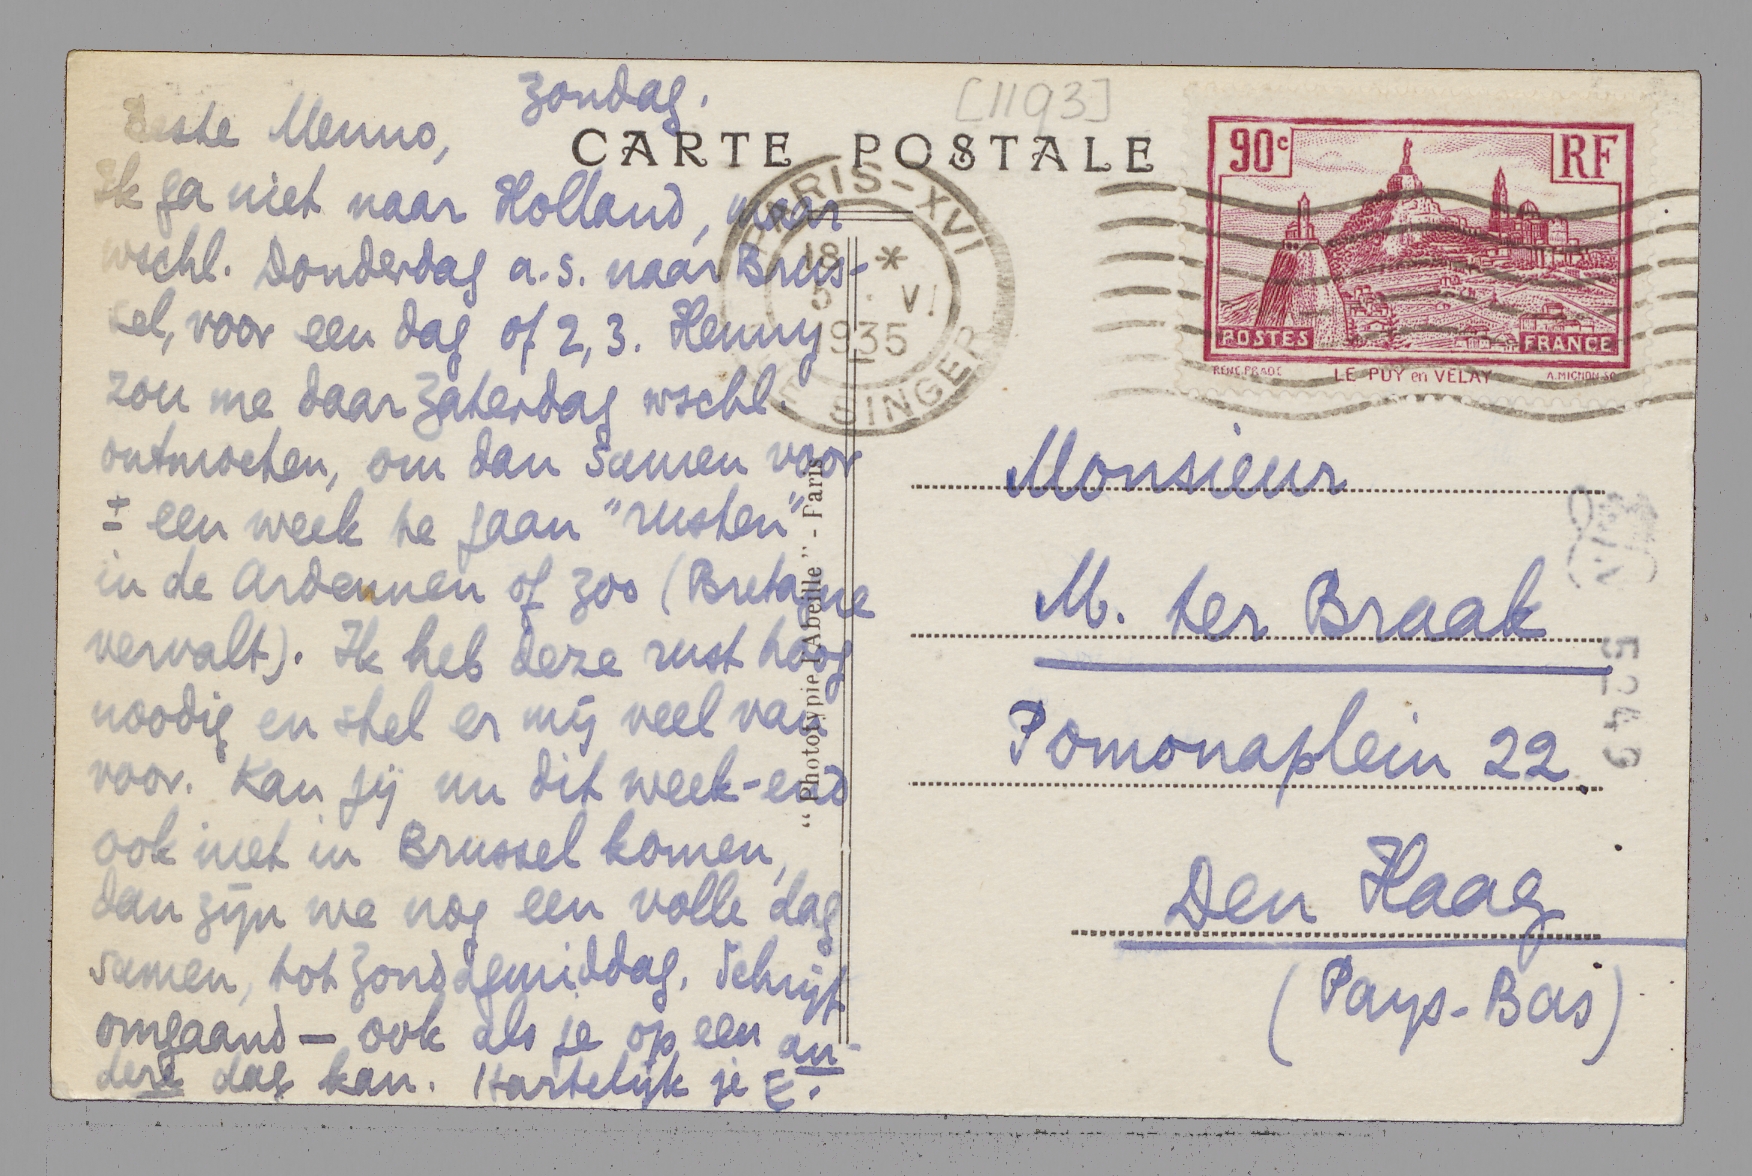 Zondag.
Beste Menno,
Ik ga niet naar Holland, maar
wschl. Donderdag a.s. naar Brus-
sel, voor een dag of 2, 3. Henny
zou me daar Zaterdag wschl.
ontmoeten, om dan samen voor
± een week te gaan "rusten"
in de Ardennen of zoo (Bretagne
vervalt). Ik heb deze rust hoog
noodig en stel er mij veel van
voor. Kan jij nu dit week-end
ook niet in Brussel komen,
dan zijn we nog een volle dag
samen, tot Zondagmiddag. Schrijf
omgaand — ook als je op een an-
dere dag kan. Hartelijk je E.
[1193]
CARTE POSTALE
PARIS-XVI
18 *
VI
1935
SINGER
90c RF
POSTES FRANCE
LE PUY en VELAY
"Photolypie L'Abeille" - Paris
Monsieur
M. ter Braak
Pomonaplein 22.
Den Haag
(Pays-Bas)